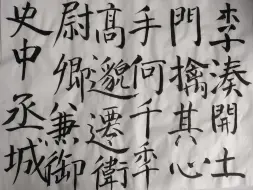 李湊開土
門擒其心
手何千秊
髙邈遷衛
尉卿兼御
史中丞城